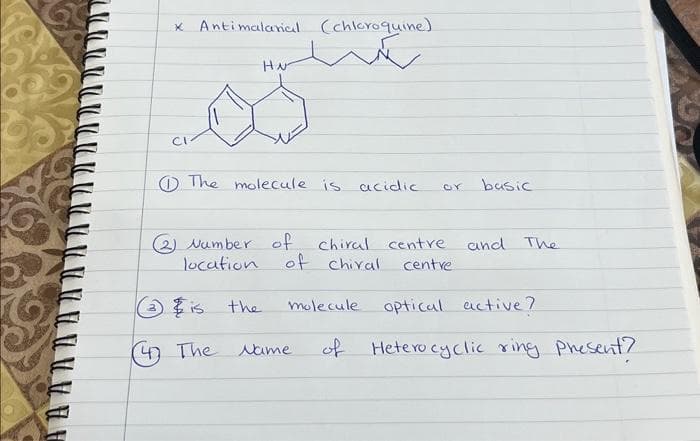 x Antimalarial (chloroquine)
HN
N
Cl
N
① The molecule is acidic or basic
② Number of chiral centre and The
location of chiral centre
③ is the molecule optical active?
④ The Name of Heterocyclic ring Present?